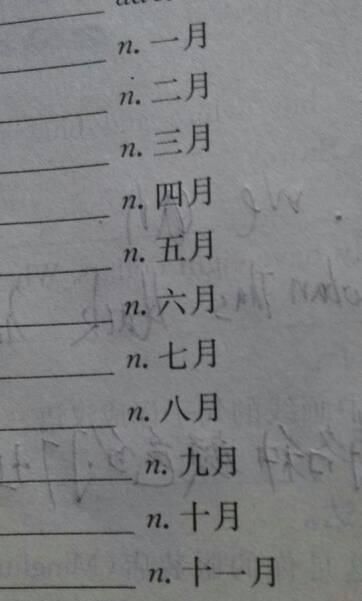 n. 一月
n. 二月
n. 三月
n. 四月
n. 五月
n. 六月
n. 七月
n. 八月
n. 九月
n. 十月
n. 十一月